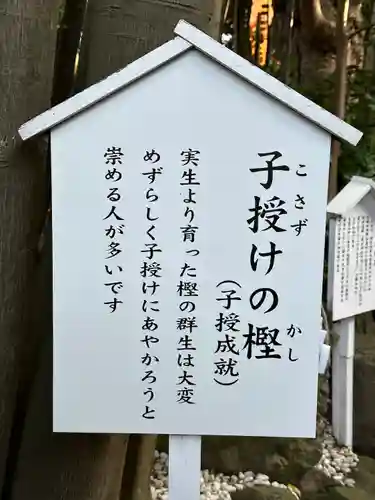 子授けの樫
こさず かし
(子授成就)
実生より育った樫の群生は大変
めずらしく子授けにあやかろうと
崇める人が多いです